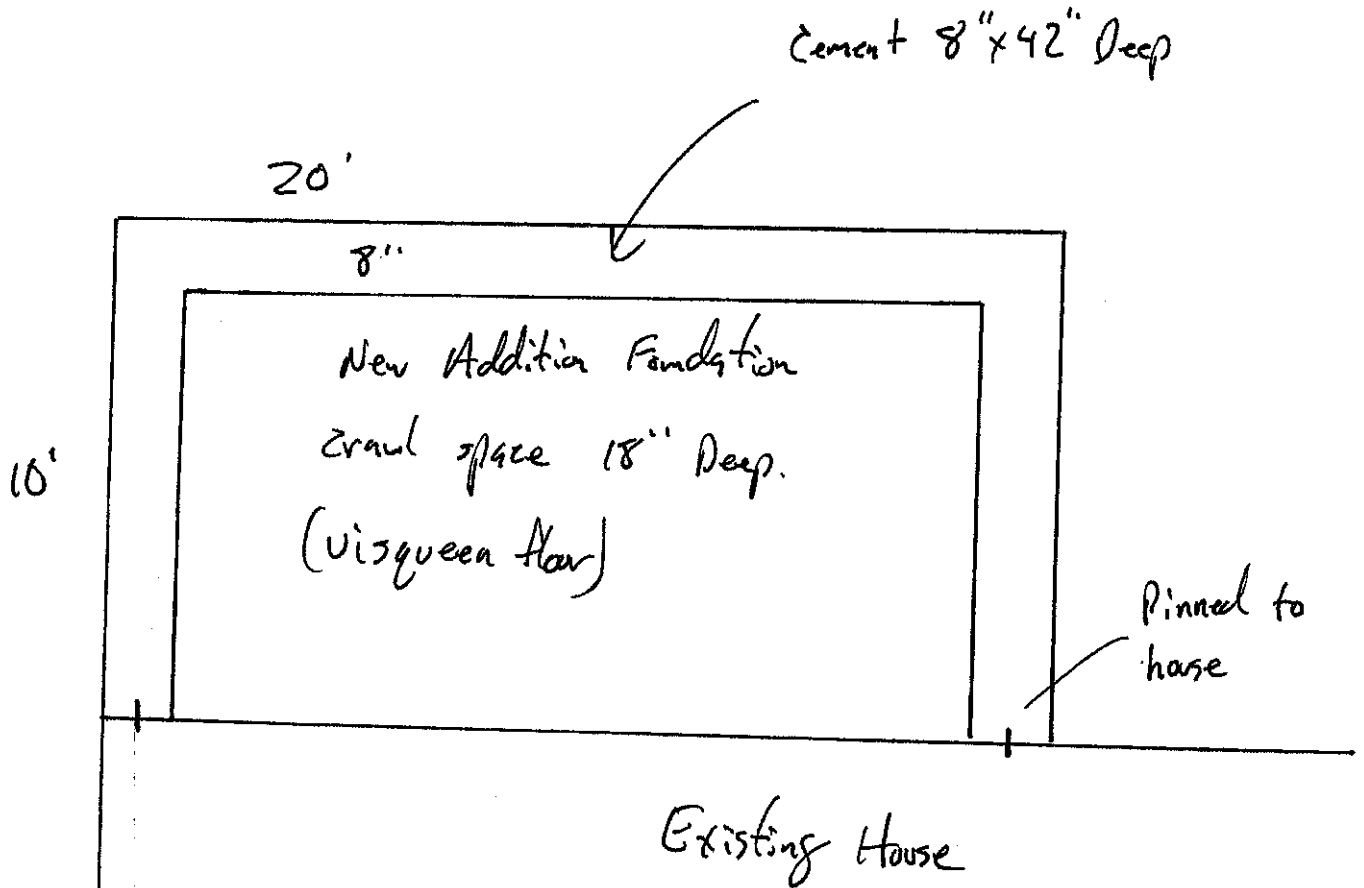 Cement 8"x42" Deep
20'
8"
New Addition Foundation
Crawl space 18" Deep.
10'
(Visqueen floor)
Pinned to
house
Existing House